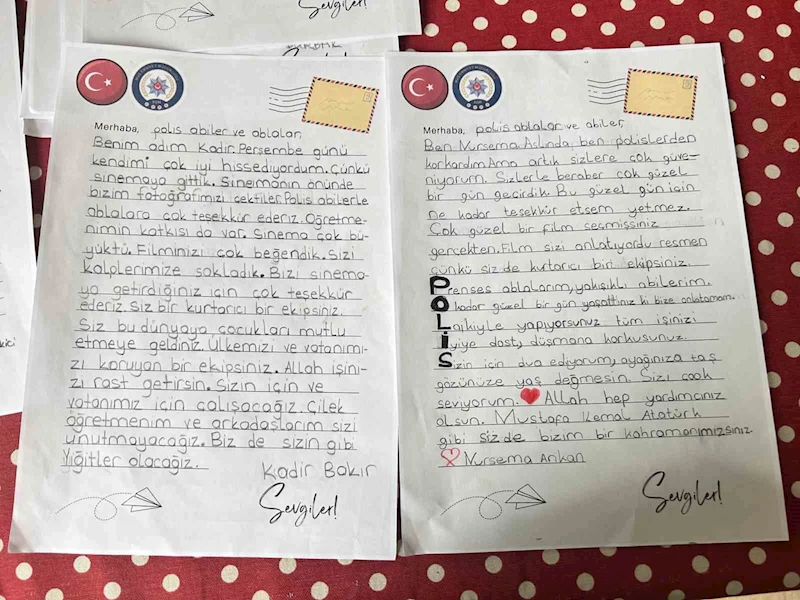 Sevgiler!
Merhaba, polis abiler ve ablalar,
Benim adım Kadir. Persembe günü
kendimi çok iyi hissediyordum. Çünkü
sinemaya gittik. Sinemanın önünde
bizim fotoğrafımızı çektiler. Polis abilerle
ablalara çok teşekkür ederiz. Öğretme-
nimin katkısı da var. Sinema çok bü-
yüktü. Filminizi çok beğendik. Sizi
kalplerimize sakladık. Bizi sinema-
ya getirdiğiniz için çok teşekkür
ederiz. Siz bir kurtarıcı bir ekipsiniz.
Siz bu dünyaya çocukları mutlu
etmeye geldiniz. Ülkemizi ve vatanımı-
zı koruyan bir ekipsiniz. Allah işini-
zi rast getirsin. Sizin için ve
vatanımız için çalışacağız. Çilek
öğretmenim ve arkadaşlarım sizi
unutmayacağız. Biz de sizin gibi
Yiğitler olacağız.
Kadir Bakır
Sevgiler!
Merhaba, polis ablalar ve abiler,
Ben Nursema Aslında, ben polislerden
korkardım Ama artık sizlere çok güve-
niyorum. Sizlerle beraber çok güzel
bir gün geçirdik. Bu güzel gün için
ne kadar teşekkür etsem yetmez.
Çok güzel bir film seçmişsiniz
gerçekten. Film sizi anlatıyordu resmen
çünkü siz de kurtarıcı biri ekipsiniz.
Prenses ablalarım, yakışıklı abilerim.
O kadar güzel bir gün yaşattınız ki bize anlatamam.
Layıkiyle yapıyorsunuz tüm işinizi
İyiye dost, düşmana korkusunuz.
Sizin için dua ediyorum, ayağınıza taş
gözünüze yaş değmesin. Sizi çook
seviyorum. Allah hep yardımcınız
olsun. Mustafa Kemal Atatürk
gibi sizde bizim bir kahramanımızsınız.
Nursema Arıkan
Sevgiler!